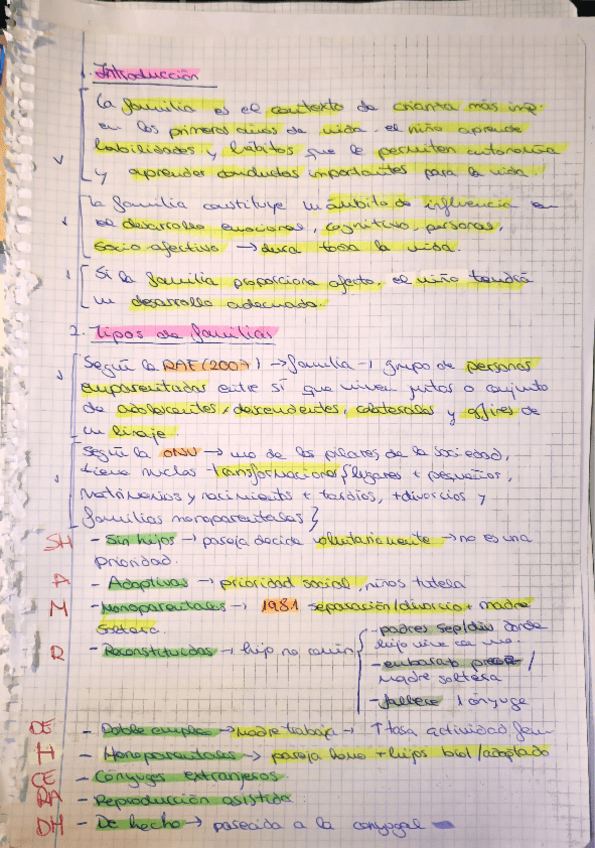 1. Introducción
La familia es el contexto de crianza más imp.
en los primeros años de vida. el niño aprende
habilidades y hábitos que le permiten autonomía
y aprender conductas importantes para la vida.
La familia constituye un ámbito de influencia en
el desarrollo emocional, cognitivo, personal,
socio-afectivo → dura toda la vida.
Si la familia proporciona afecto, el niño tendrá
un desarrollo adecuado.
2. Tipos de familias
Según la RAE (2007) → familia → grupo de personas
emparentadas entre sí que viven juntos o conjunto
de ascendentes, descendentes, colaterales y afines de
un linaje.
Según la ONU → uno de los pilares de la sociedad,
tiene muchas transformaciones {hogares + pequeños,
matrimonios y nacimientos + tardíos, +divorcios y
familias monoparentales}
SH - Sin hijos → pareja decide voluntariamente → no es una
prioridad.
A - Adoptivas → prioridad social, niños tutela
M - Monoparentales → 1981 separación/divorcio + madre
soltera.
R - Reconstituidas → hijo no común { - padres sep/div donde
hijo vive con uno.
- embarazo precoz /
madre soltera
- fallece 1 cónyuge
DE - Doble empleo → madre trabaja → ↑ tasa actividad fem
H - Homoparentales → pareja homo + hijos biol/adoptado
CE - Cónyuges extranjeros
RA - Reproducción asistida
DH - De hecho → parecida a la conyugal